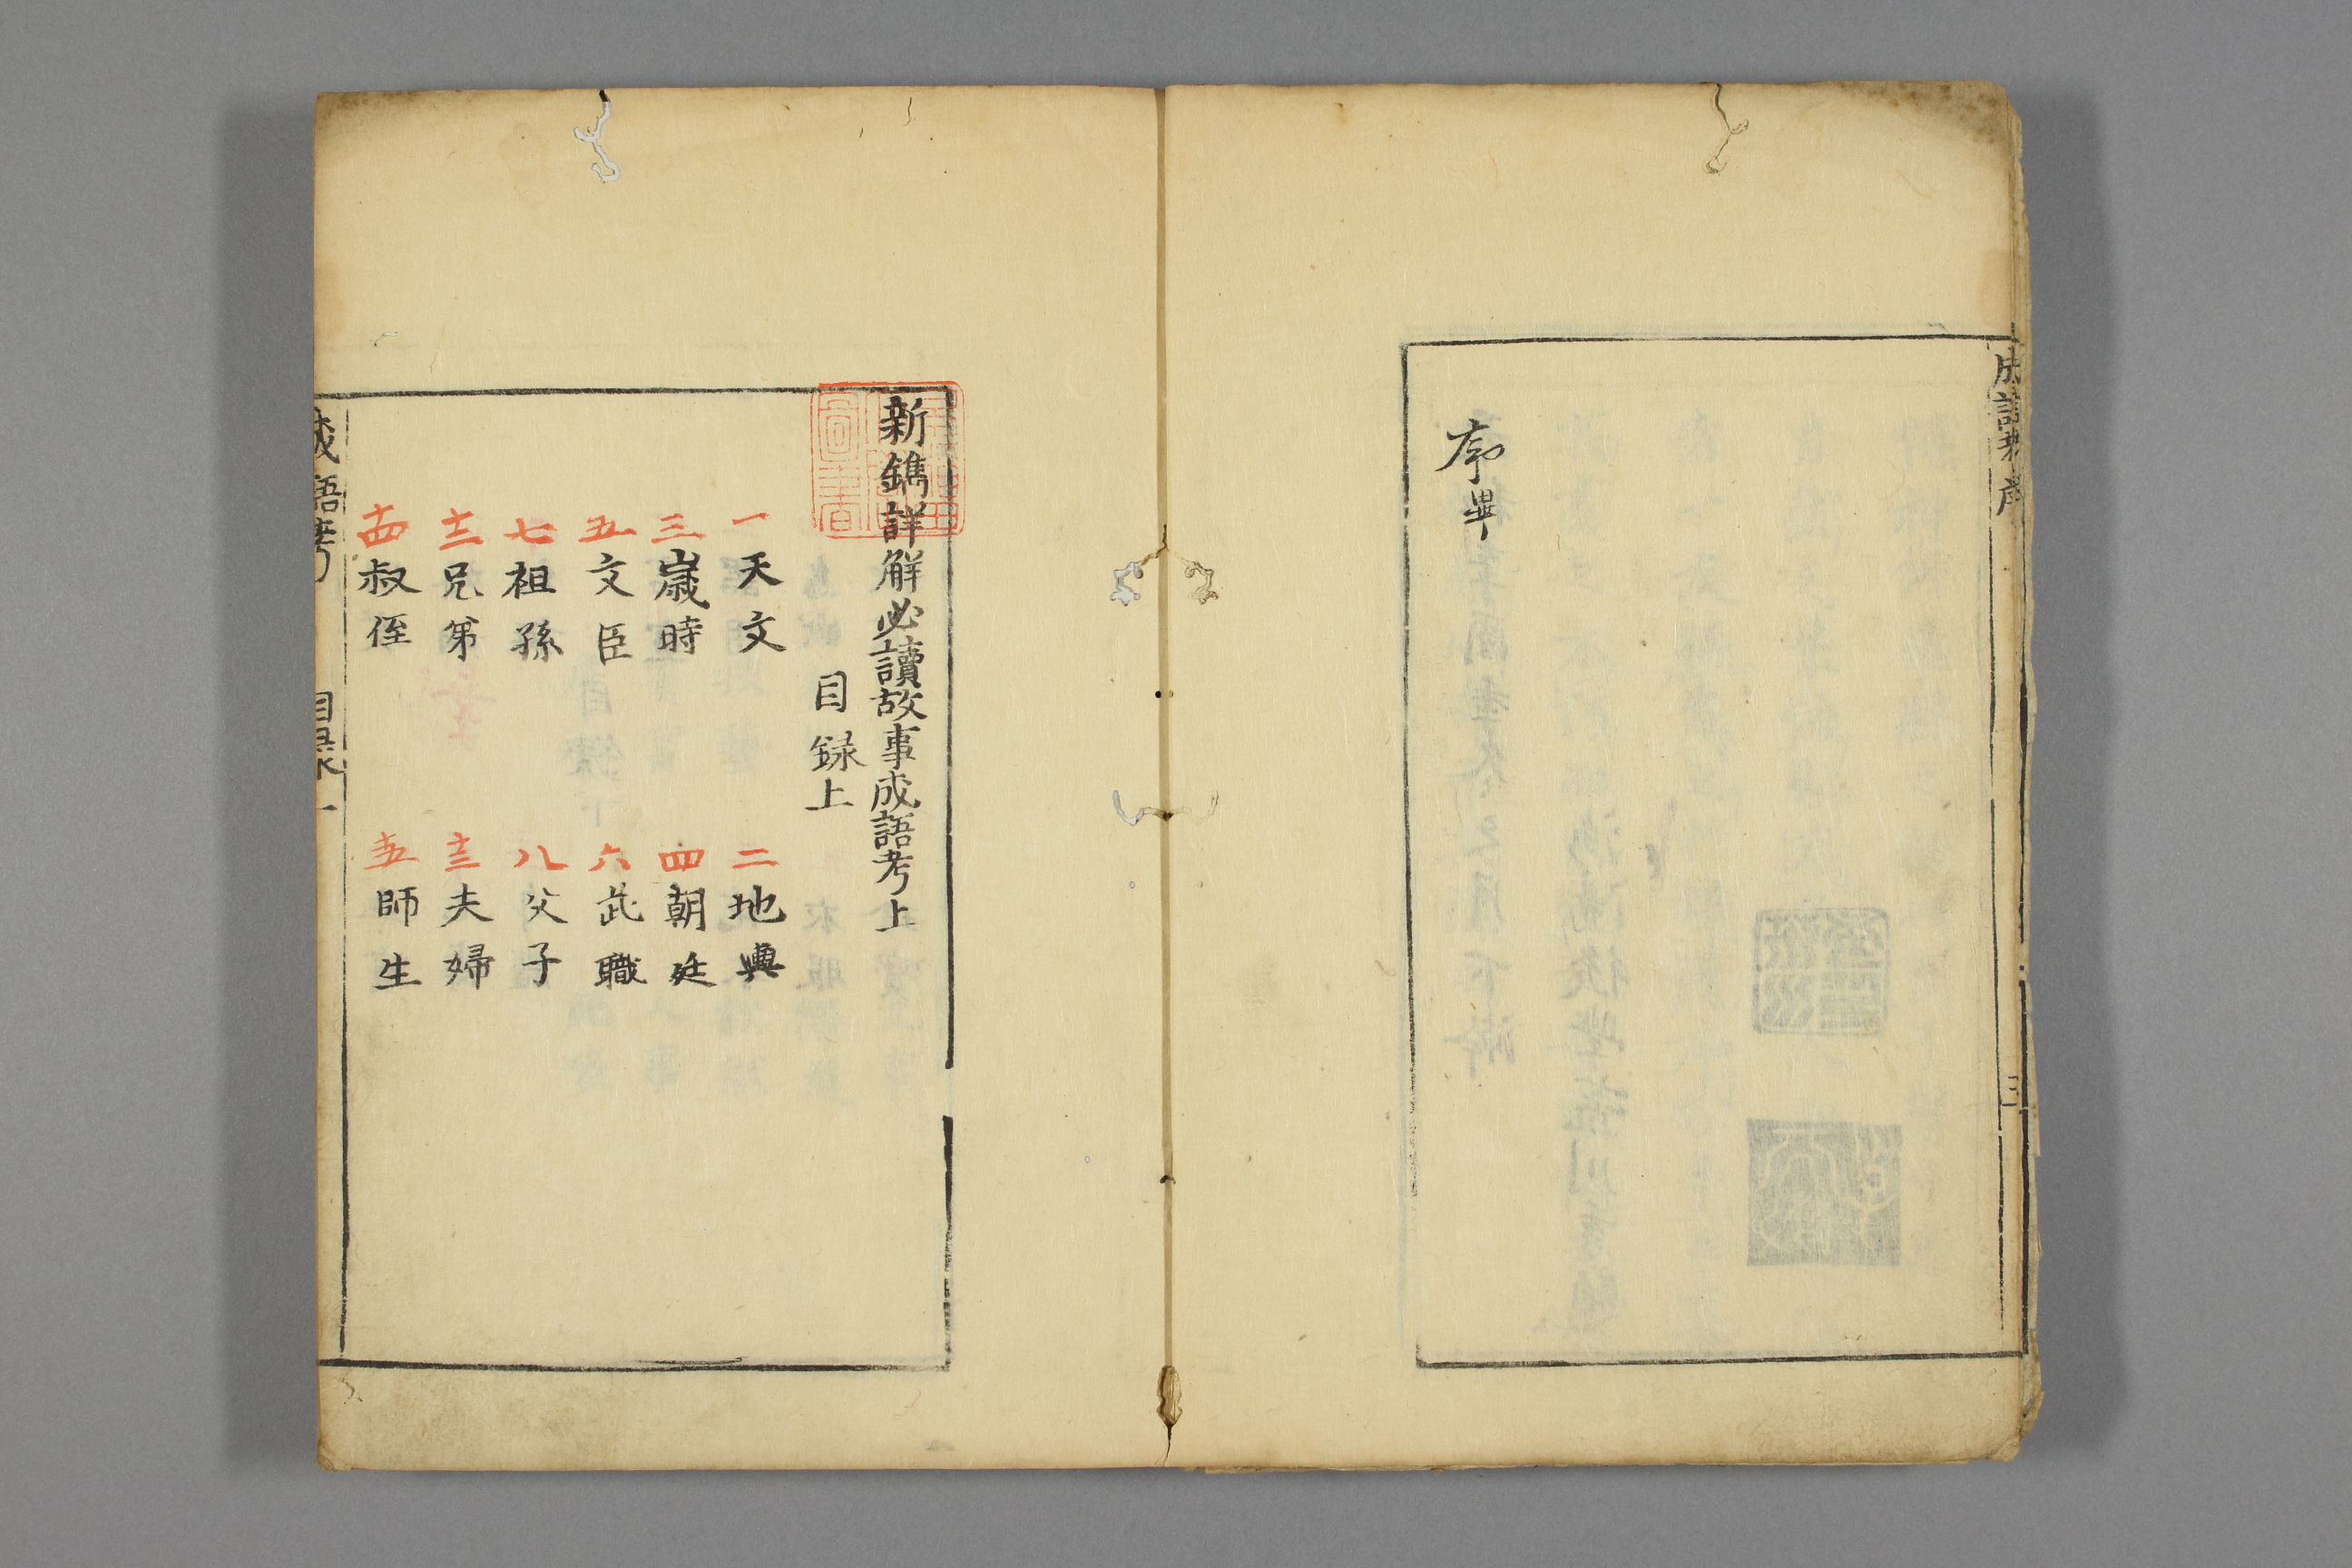 成語考序 三
序畢
新鐫詳解必讀故事成語考上
目録上
一天文 二地輿
三歳時 四朝廷
五文臣 六武職
七祖孫 八父子
十二兄第 十三夫婦
十四叔侄 十五師生
成語考 目录 一